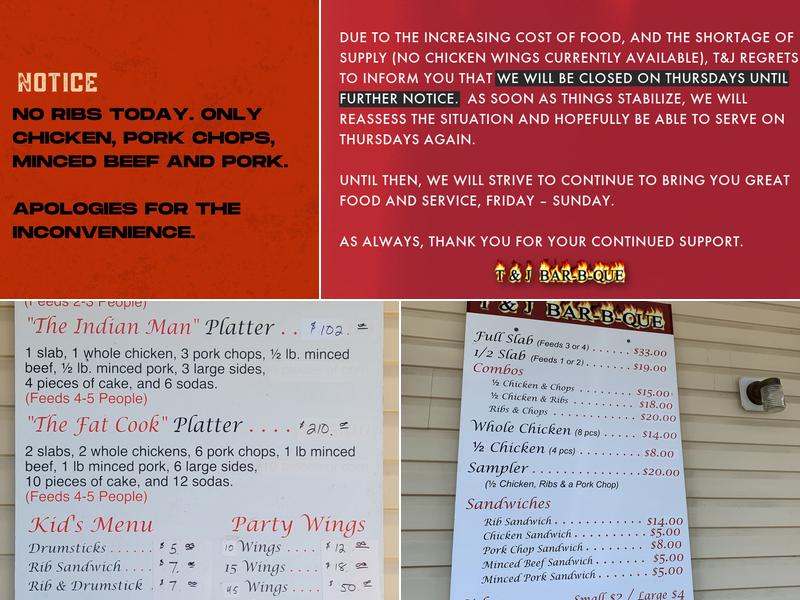 NOTICE
NO RIBS TODAY. ONLY
CHICKEN, PORK CHOPS,
MINCED BEEF AND PORK.
APOLOGIES FOR THE
INCONVENIENCE.
DUE TO THE INCREASING COST OF FOOD, AND THE SHORTAGE OF
SUPPLY (NO CHICKEN WINGS CURRENTLY AVAILABLE), T&J REGRETS
TO INFORM YOU THAT WE WILL BE CLOSED ON THURSDAYS UNTIL
FURTHER NOTICE. AS SOON AS THINGS STABILIZE, WE WILL
REASSESS THE SITUATION AND HOPEFULLY BE ABLE TO SERVE ON
THURSDAYS AGAIN.
UNTIL THEN, WE WILL STRIVE TO CONTINUE TO BRING YOU GREAT
FOOD AND SERVICE, FRIDAY – SUNDAY.
AS ALWAYS, THANK YOU FOR YOUR CONTINUED SUPPORT.
T & J BAR-B-QUE
(Feeds 2-3 People)
"The Indian Man" Platter . . $102. 00
1 slab, 1 whole chicken, 3 pork chops, ½ lb. minced
beef, ½ lb. minced pork, 3 large sides,
4 pieces of cake, and 6 sodas.
(Feeds 4-5 People)
"The Fat Cook" Platter . . . . $210. 00
2 slabs, 2 whole chickens, 6 pork chops, 1 lb minced
beef, 1 lb minced pork, 6 large sides,
10 pieces of cake, and 12 sodas.
(Feeds 4-5 People)
Kid's Menu
Drumsticks . . . . . . $5 00
Rib Sandwich . . . . $7. 00
Rib & Drumstick . $7 00
Party Wings
10 Wings . . . . $12. 00
15 Wings . . . . $18. 00
45 Wings . . . . $50. 00
T & J BAR-B-QUE
Full Slab (Feeds 3 or 4) . . . . . . $33.00
1/2 Slab (Feeds 1 or 2) . . . . . . . $19.00
Combos
½ Chicken & Chops . . . . . . . . $15.00
½ Chicken & Ribs . . . . . . . . . $18.00
Ribs & Chops . . . . . . . . . . . . $20.00
Whole Chicken (8 pcs) . . . . . . $14.00
½ Chicken (4 pcs) . . . . . . . . . . $8.00
Sampler . . . . . . . . . . . . . . . $20.00
(½ Chicken, Ribs & a Pork Chop)
Sandwiches
Rib Sandwich . . . . . . . . . . . $14.00
Chicken Sandwich . . . . . . . . $5.00
Pork Chop Sandwich . . . . . . $8.00
Minced Beef Sandwich . . . . . $5.00
Minced Pork Sandwich . . . . . $5.00
Small $2 / Large $4